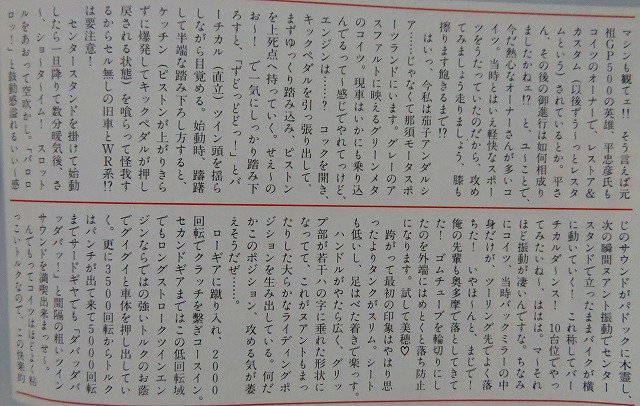 マシンも観てェ!! そう言えば元
祖GP500の英雄、平忠彦氏も
コイツのオーナーで、レストア&
カスタム（以後ずう〜っとレスタ
ムという）されているとか。平さ
ん、その後の御進行は如何相成り
ましたかねェ!? と、ユ〜ことで、
今だ熱心なオーナーさんが多いコ
イツ。当時とはいえ軽快なスポー
ツをうたっていたのだから、攻め
てみましょう走りましょう、膝も
擦ります飽きるまで!?
はいっ、今私は茄子アンダルシ
ア……じゃなくて那須モータスポ
ーツランドにいます。グレーのア
スファルトに映えるグリーンメタ
のコイツ。現車はいかにも乗り込
んでるって〜感じでやれてっけど、
エンジンは……? コックを開き、
キックペダルを引っ張り出して、
まずゆっくり踏み込み、ピストン
を上死点へ持っていく。せえ〜の
お〜ー! で一気にしっかり踏み下
ろすと、「すとっどどっ!」とバ
ーチカル（直立）ツイン頭を揺ら
しながら目覚める。始動時、躊躇
して半端な踏み下ろし方すると、
ケッチン（ピストンが上がりきら
ずに爆発してキックペダルが押し
戻される状態）を喰らって怪我す
るからセル無しの旧車とWR系!?
は要注意!
センタースタンドを掛けて始動
したら一旦降りて数分暖気後、さ
〜、ショ〜タ〜イム! スロット
ルをあおって空吹かし。「バロロ
ロッ!」と鼓動感溢れるいい〜感
じのサウンドがパドックに木霊し、
次の瞬間アンタ振動でセンター
スタンドで立ったままバイクが横
に動いていく〜! これ称してバー
チカルダ〜ンス! 10台位でやっ
てみたいね〜、ははは。マーそれ
ほど振動が凄いんですな。ちなみ
にコイツ、当時バックミラーの中
身だけが、ツーリング先でよく落
ちた! いやほ〜んと、まじで!
俺の先輩も奥多摩で落としてきて
た! ゴムチューブを輪切りにし
たのを外端にはめとくと落ち防止
になります。試して美穂♡
跨がって最初の印象はやはり思
ったよりタンクがスリム。シート
も低いし、足はべた着きで楽っす。
ハンドルがやたら広く、グリッ
プ部が若干ハの字に垂れた形状に
なってて、これがアヌアントもまっ
たりした大らかなライディングポ
ジションを生み出している。何だ
かこのポジション、攻める気が萎
えそうだぜ……
ローギアに蹴り入れ、2000
回転でクラッチを繋ぎコースイン。
セカンドギアまではこの低回転域
でもロングストロークツインエン
ジンならではの強いトルクのお蔭
でグイグイと車体を押し出してい
く。更に3500回転からトルク
はパンチが出て来て5000回転
までサードギヤでも「ダバッダバ
ッダバッ!」と間隔の粗いツイン
サウンドを満喫出来まっせ〜。
んでもってコイツはほどよく粘
っこいトルクなので、この快楽的